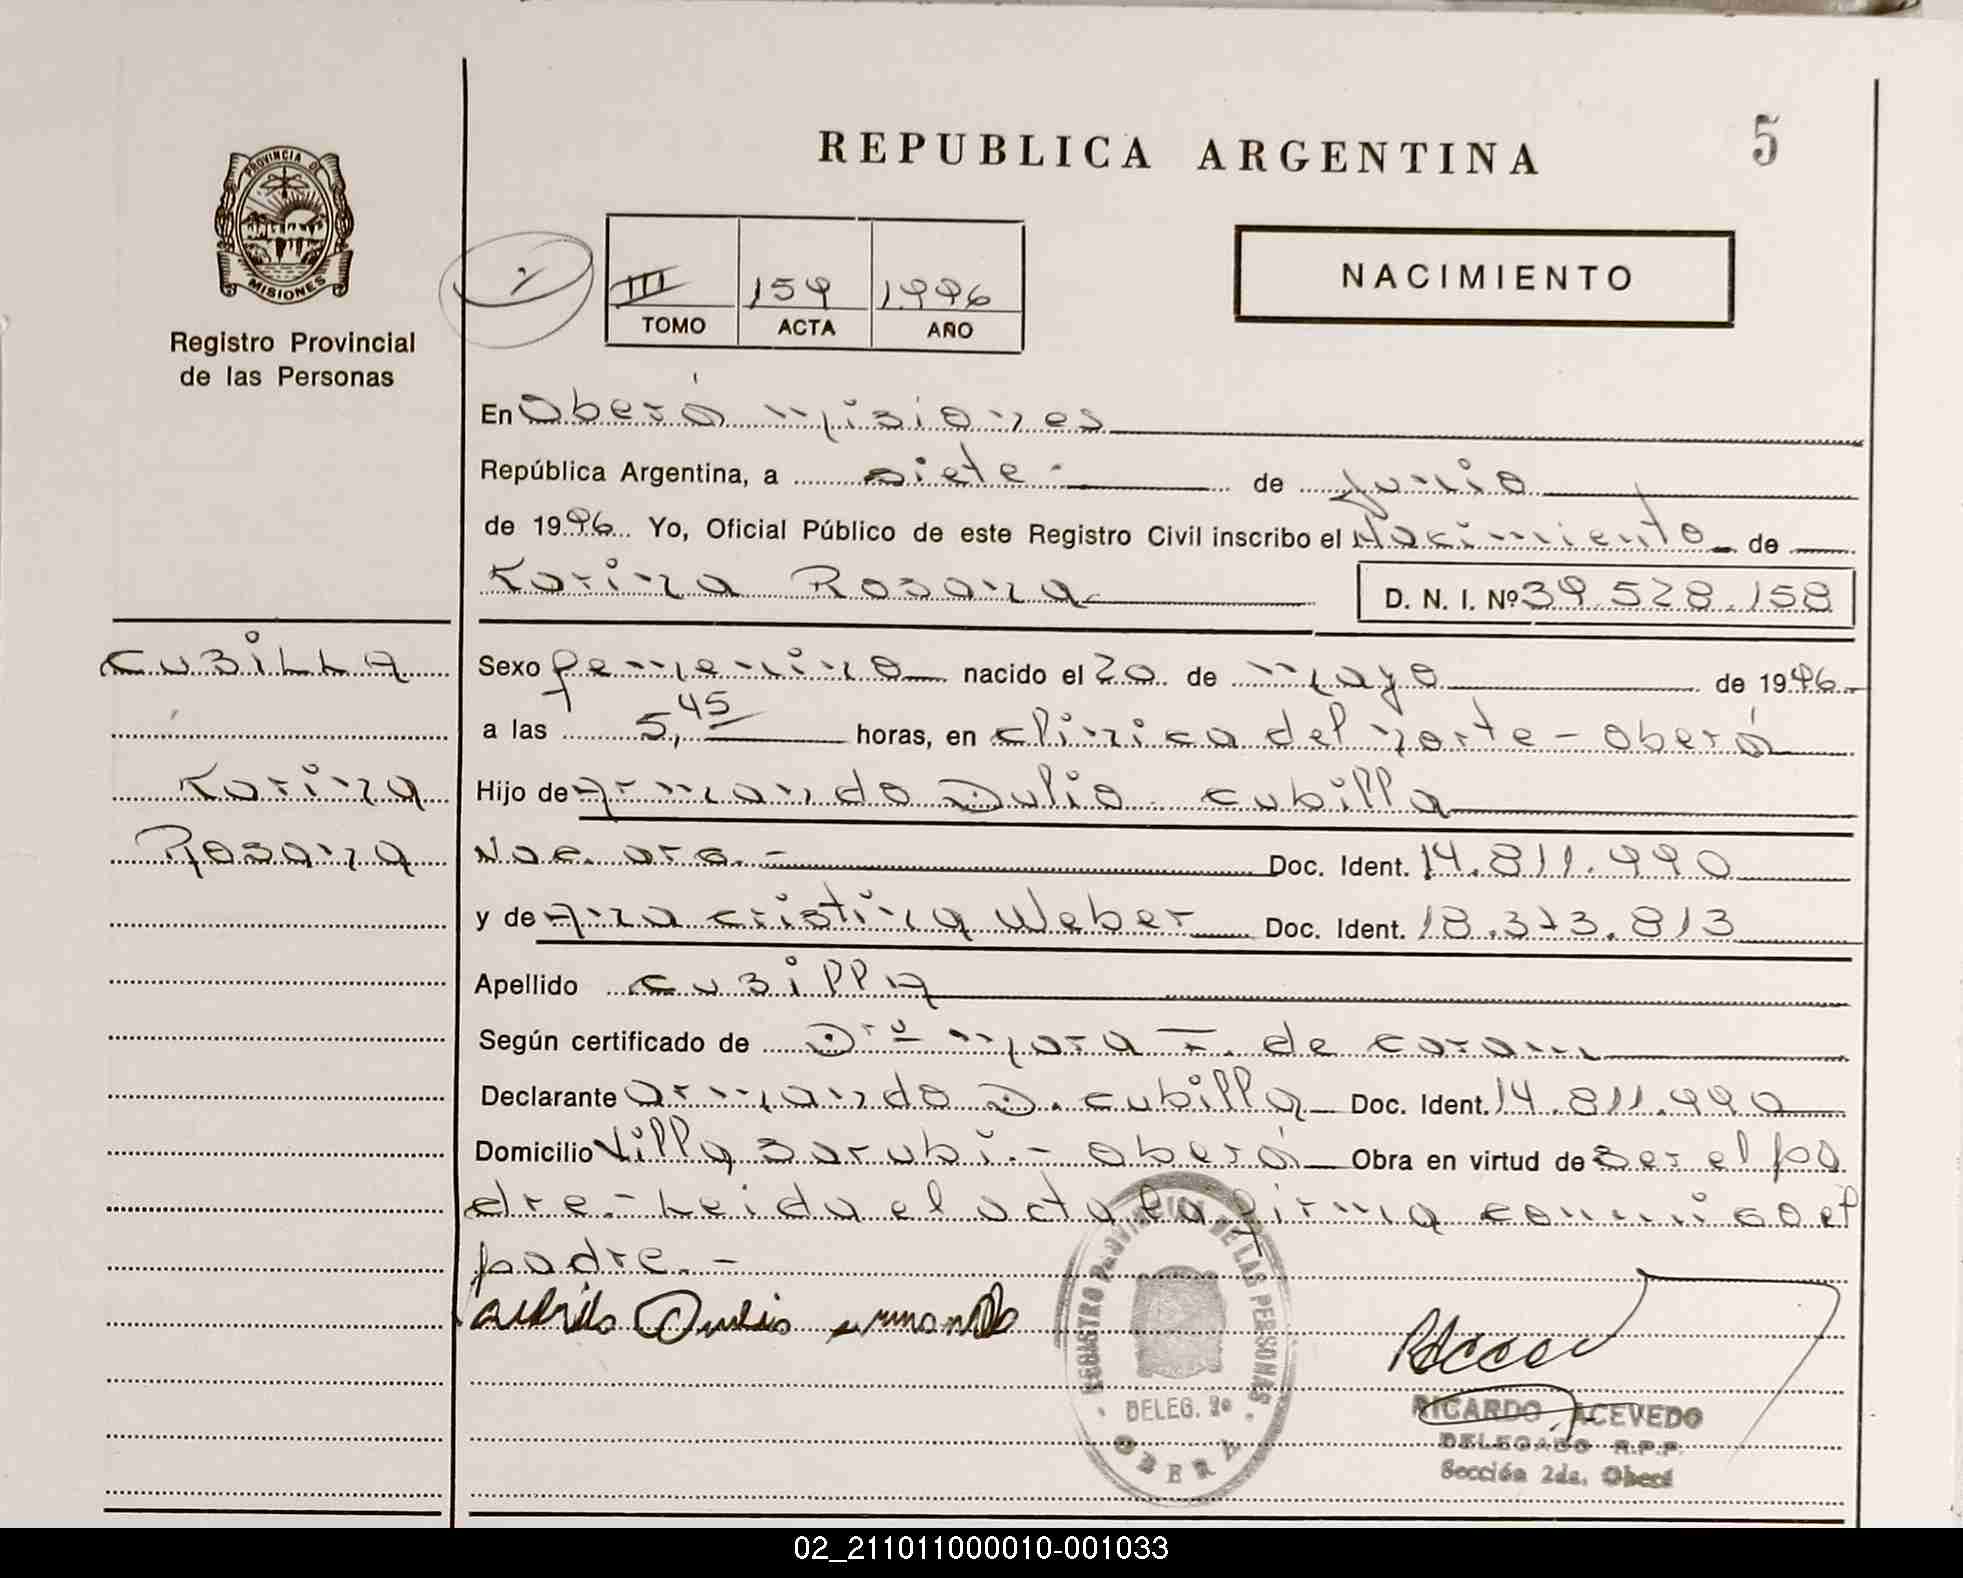 REPUBLICA ARGENTINA
5
PROVINCIA DE
MISIONES
Registro Provincial
de las Personas
III 159 1996
TOMO ACTA AÑO
NACIMIENTO
En Oberá Misiones
República Argentina, a siete.- de junio
de 1996 Yo, Oficial Público de este Registro Civil inscribo el Nacimiento de
Karina Rosana D. N. I. Nº 39.528.158
CUBILLA
Karina
Rosana
Sexo femenino nacido el 20 de mayo de 1996
a las 5,45 horas, en clinica del norte - Oberá
Hijo de Armando Dulio cubilla
Nac. arg.- Doc. Ident. 14.811.990
y de Ana cristina Weber Doc. Ident. 18.373.813
Apellido cubilla
Según certificado de Drª Mora T. de
Declarante armando D. cubilla Doc. Ident. 14.811.990
Domicilio Villa Sarubi.- Oberá Obra en virtud de ser el pa
dre.- Leida el acta la firma conmigo el
padre.-
REGISTRO PROVINCIAL DE LAS PERSONAS
DELEG. 2º
OBERA
RICARDO ACEVEDO
DELEGADO R.P.P.
Sección 2da. Oberá
02_211011000010-001033